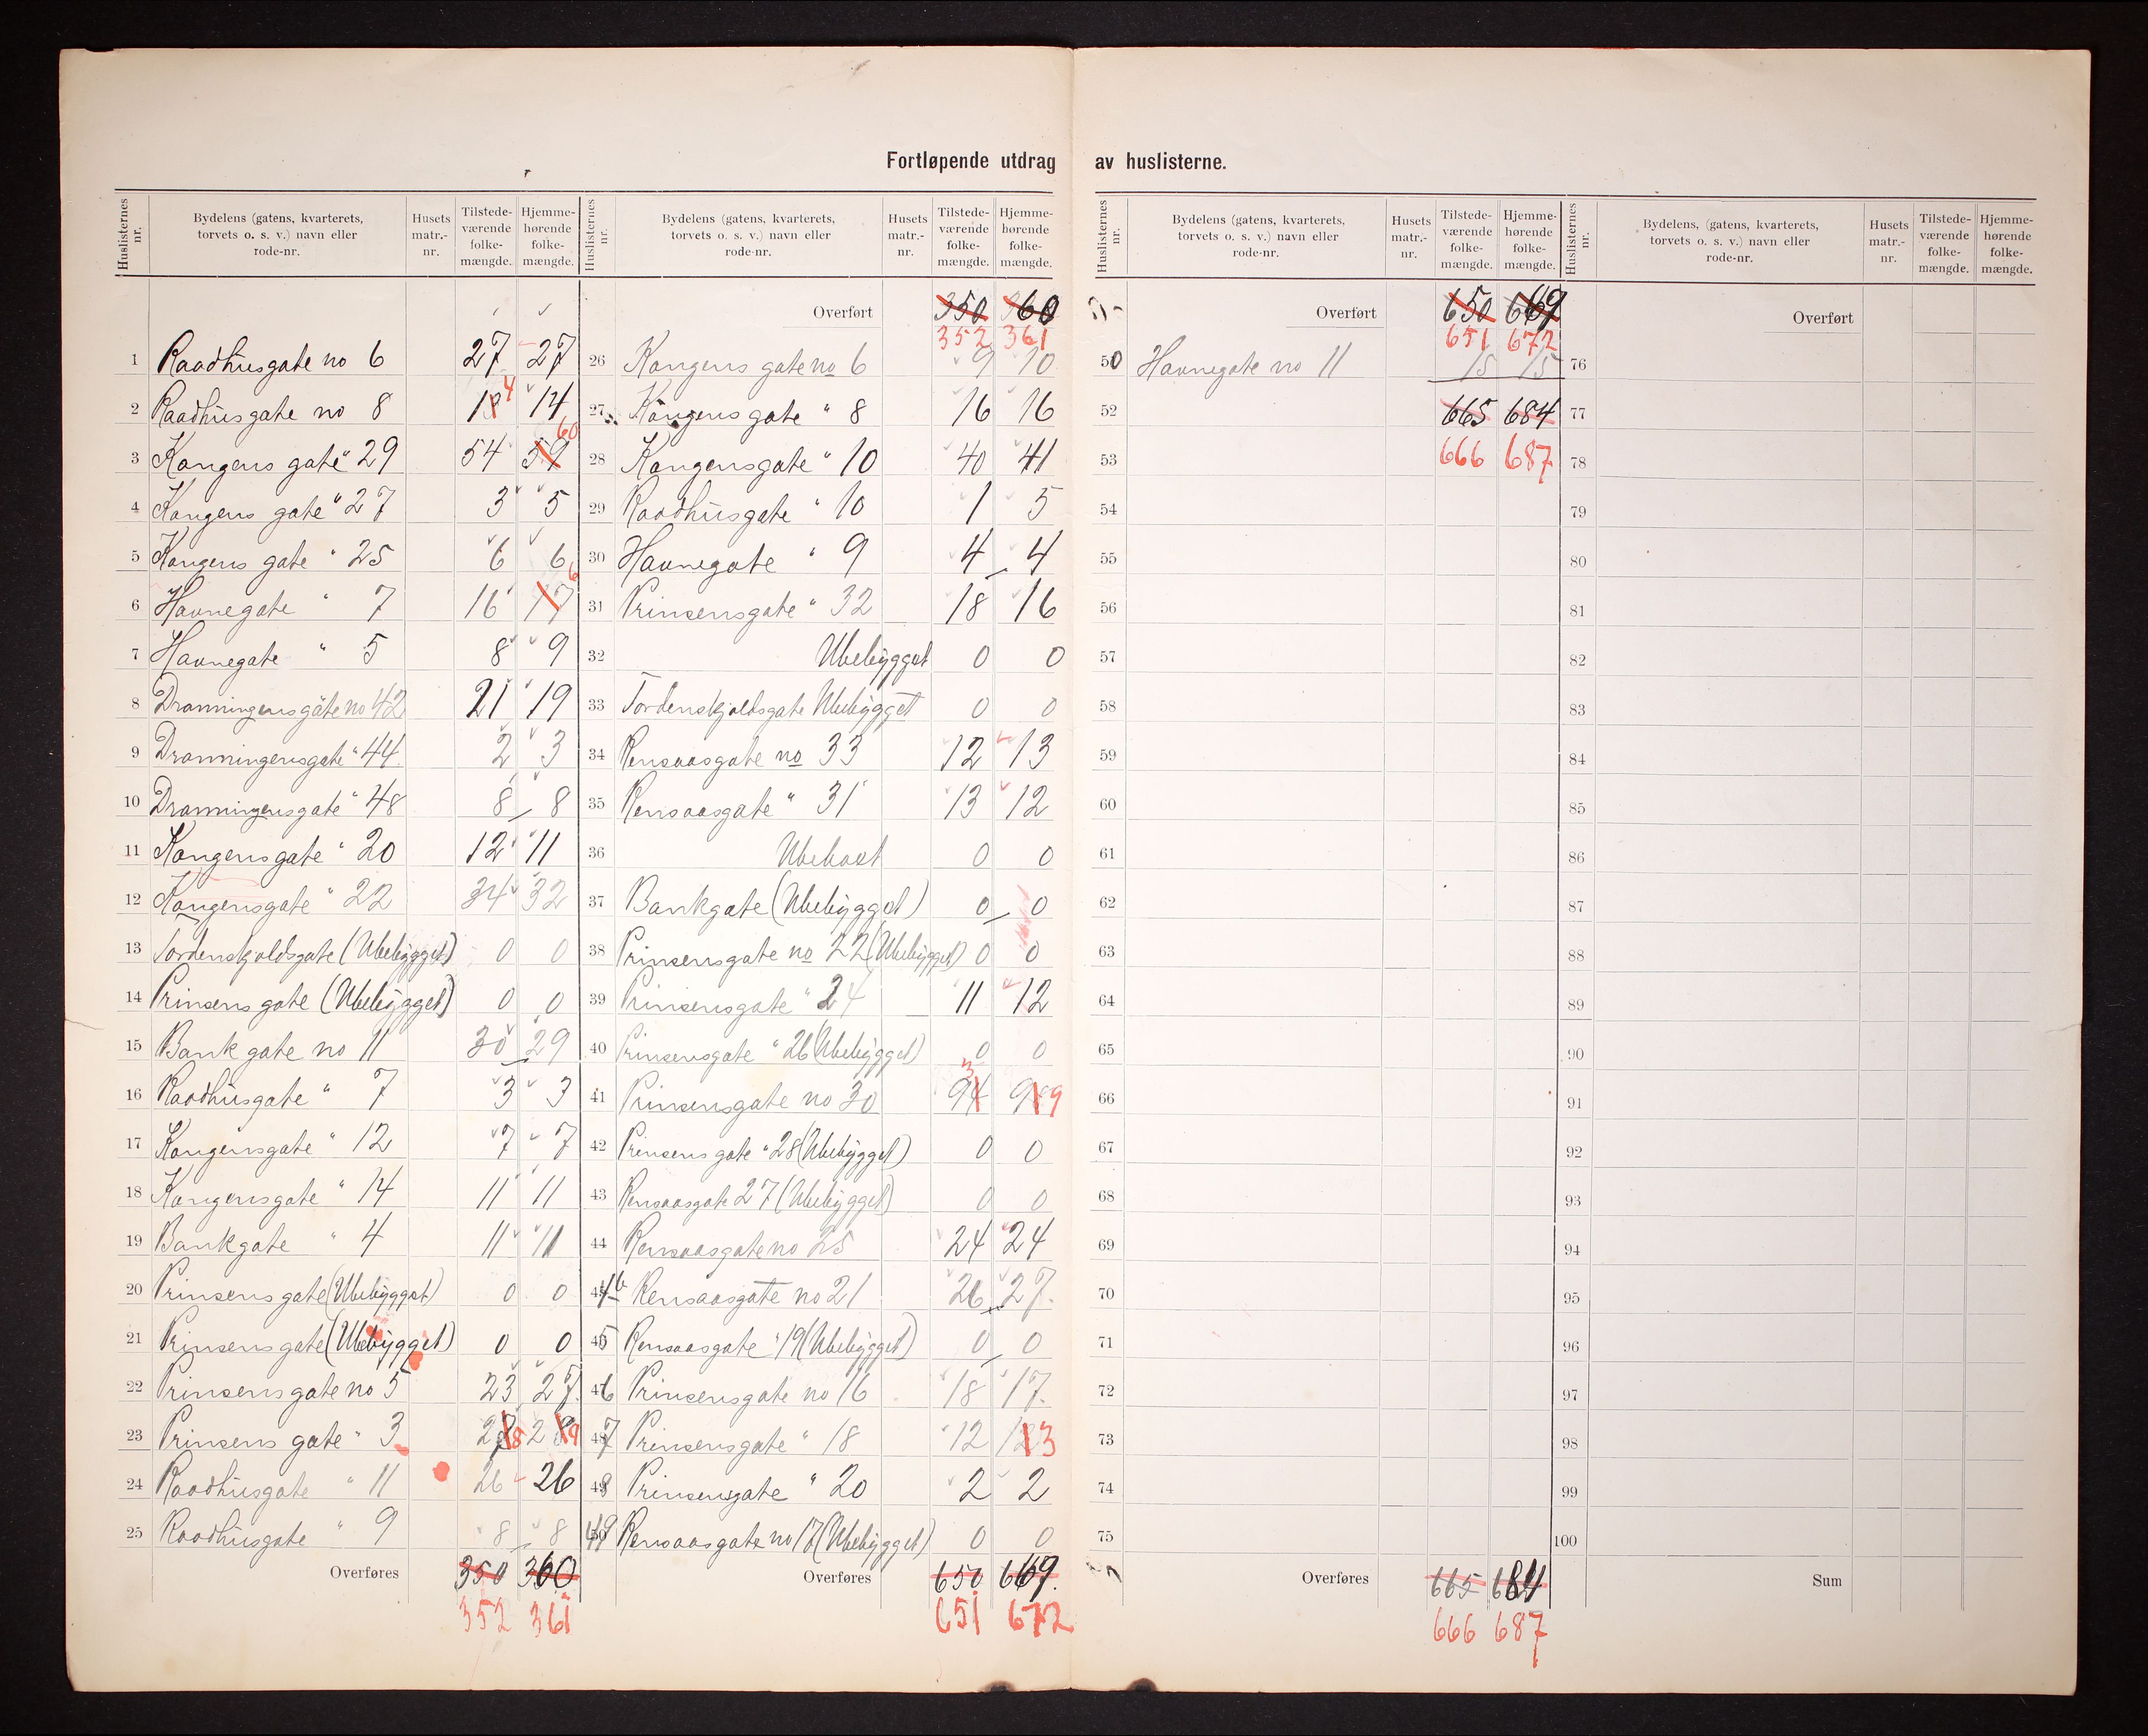 Fortløpende utdrag av huslisterne.
Huslisternes nr. Bydelens (gatens, kvarterets, torvets o. s. v.) navn eller rode-nr. Husets matr.-nr. Tilstede-værende folke-mængde. Hjemme-hørende folke-mængde.
1 Raadhusgate no 6 27 27
2 Raadhusgate no 8 13 4 14
3 Kongens gate " 29 54 59 60
4 Kongens gate " 27 3 5
5 Kongens gate " 25 6 6
6 Havnegate " 7 16 17 6
7 Havnegate " 5 8 9
8 Dronningensgate no 42 21 19
9 Dronningensgate " 44 2 3
10 Dronningensgate " 48 8 8
11 Kongensgate " 20 12 11
12 Kongensgate " 22 34 32
13 Tordenskjoldsgate (Ubebygget) 0 0
14 Prinsens gate (Ubebygget) 0 0
15 Bank gate no 11 30 29
16 Raadhusgate " 7 3 3
17 Kongensgate " 12 7 7
18 Kongensgate " 14 11 11
19 Bankgate " 4 11 11
20 Prinsens gate (Ubebygget) 0 0
21 Prinsens gate (Ubebygget) 0 0
22 Prinsens gate no 5 23 27
23 Prinsens gate " 3 27 8 28 9
24 Raadhusgate " 11 26 26
25 Raadhusgate " 9 8 8
Overføres 350 360
352 361
Huslisternes nr. Bydelens (gatens, kvarterets, torvets o. s. v.) navn eller rode-nr. Husets matr.-nr. Tilstede-værende folke-mængde. Hjemme-hørende folke-mængde.
Overført 350 360
352 361
26 Kongens gate no 6 9 10
27 Kongens gate " 8 16 16
28 Kongensgate " 10 40 41
29 Raadhusgate " 10 1 5
30 Havnegate " 9 4 4
31 Prinsensgate " 32 18 16
32 Ubebygget 0 0
33 Tordenskjoldsgate Ubebygget 0 0
34 Rensaasgate no 33 12 13
35 Rensaasgate " 31 13 12
36 Ubeboet 0 0
37 Bankgate (Ubebygget) 0 0
38 Prinsensgate no 22 (Ubebygget) 0 0
39 Prinsensgate " 24 11 12
40 Prinsensgate " 26 (Ubebygget) 0 0
41 Prinsensgate no 30 94 3 9 9
42 Prinsens gate " 28 (Ubebygget) 0 0
43 Rensaasgate 27 (Ubebygget) 0 0
44 Rensaasgate no 25 24 24
44b Rensaasgate no 21 26 27
45 Rensaasgate " 19 (Ubebygget) 0 0
46 Prinsensgate no 16 18 17
47 Prinsensgate " 18 12 12 13
48 Prinsensgate " 20 2 2
49 Rensaasgate no 17 (Ubebygget) 0 0
Overføres 650 669
651 672
Huslisternes nr. Bydelens (gatens, kvarterets, torvets o. s. v.) navn eller rode-nr. Husets matr.-nr. Tilstede-værende folke-mængde. Hjemme-hørende folke-mængde.
Overført 650 669
651 672
50 Havnegate no 11 15 15
52 665 684
53 666 687
54
55
56
57
58
59
60
61
62
63
64
65
66
67
68
69
70
71
72
73
74
75
Overføres 665 684
666 687
Huslisternes nr. Bydelens, (gatens, kvarterets, torvets o. s. v.) navn eller rode-nr. Husets matr.-nr. Tilstede-værende folke-mængde. Hjemme-hørende folke-mængde.
Overført
76
77
78
79
80
81
82
83
84
85
86
87
88
89
90
91
92
93
94
95
96
97
98
99
100
Sum